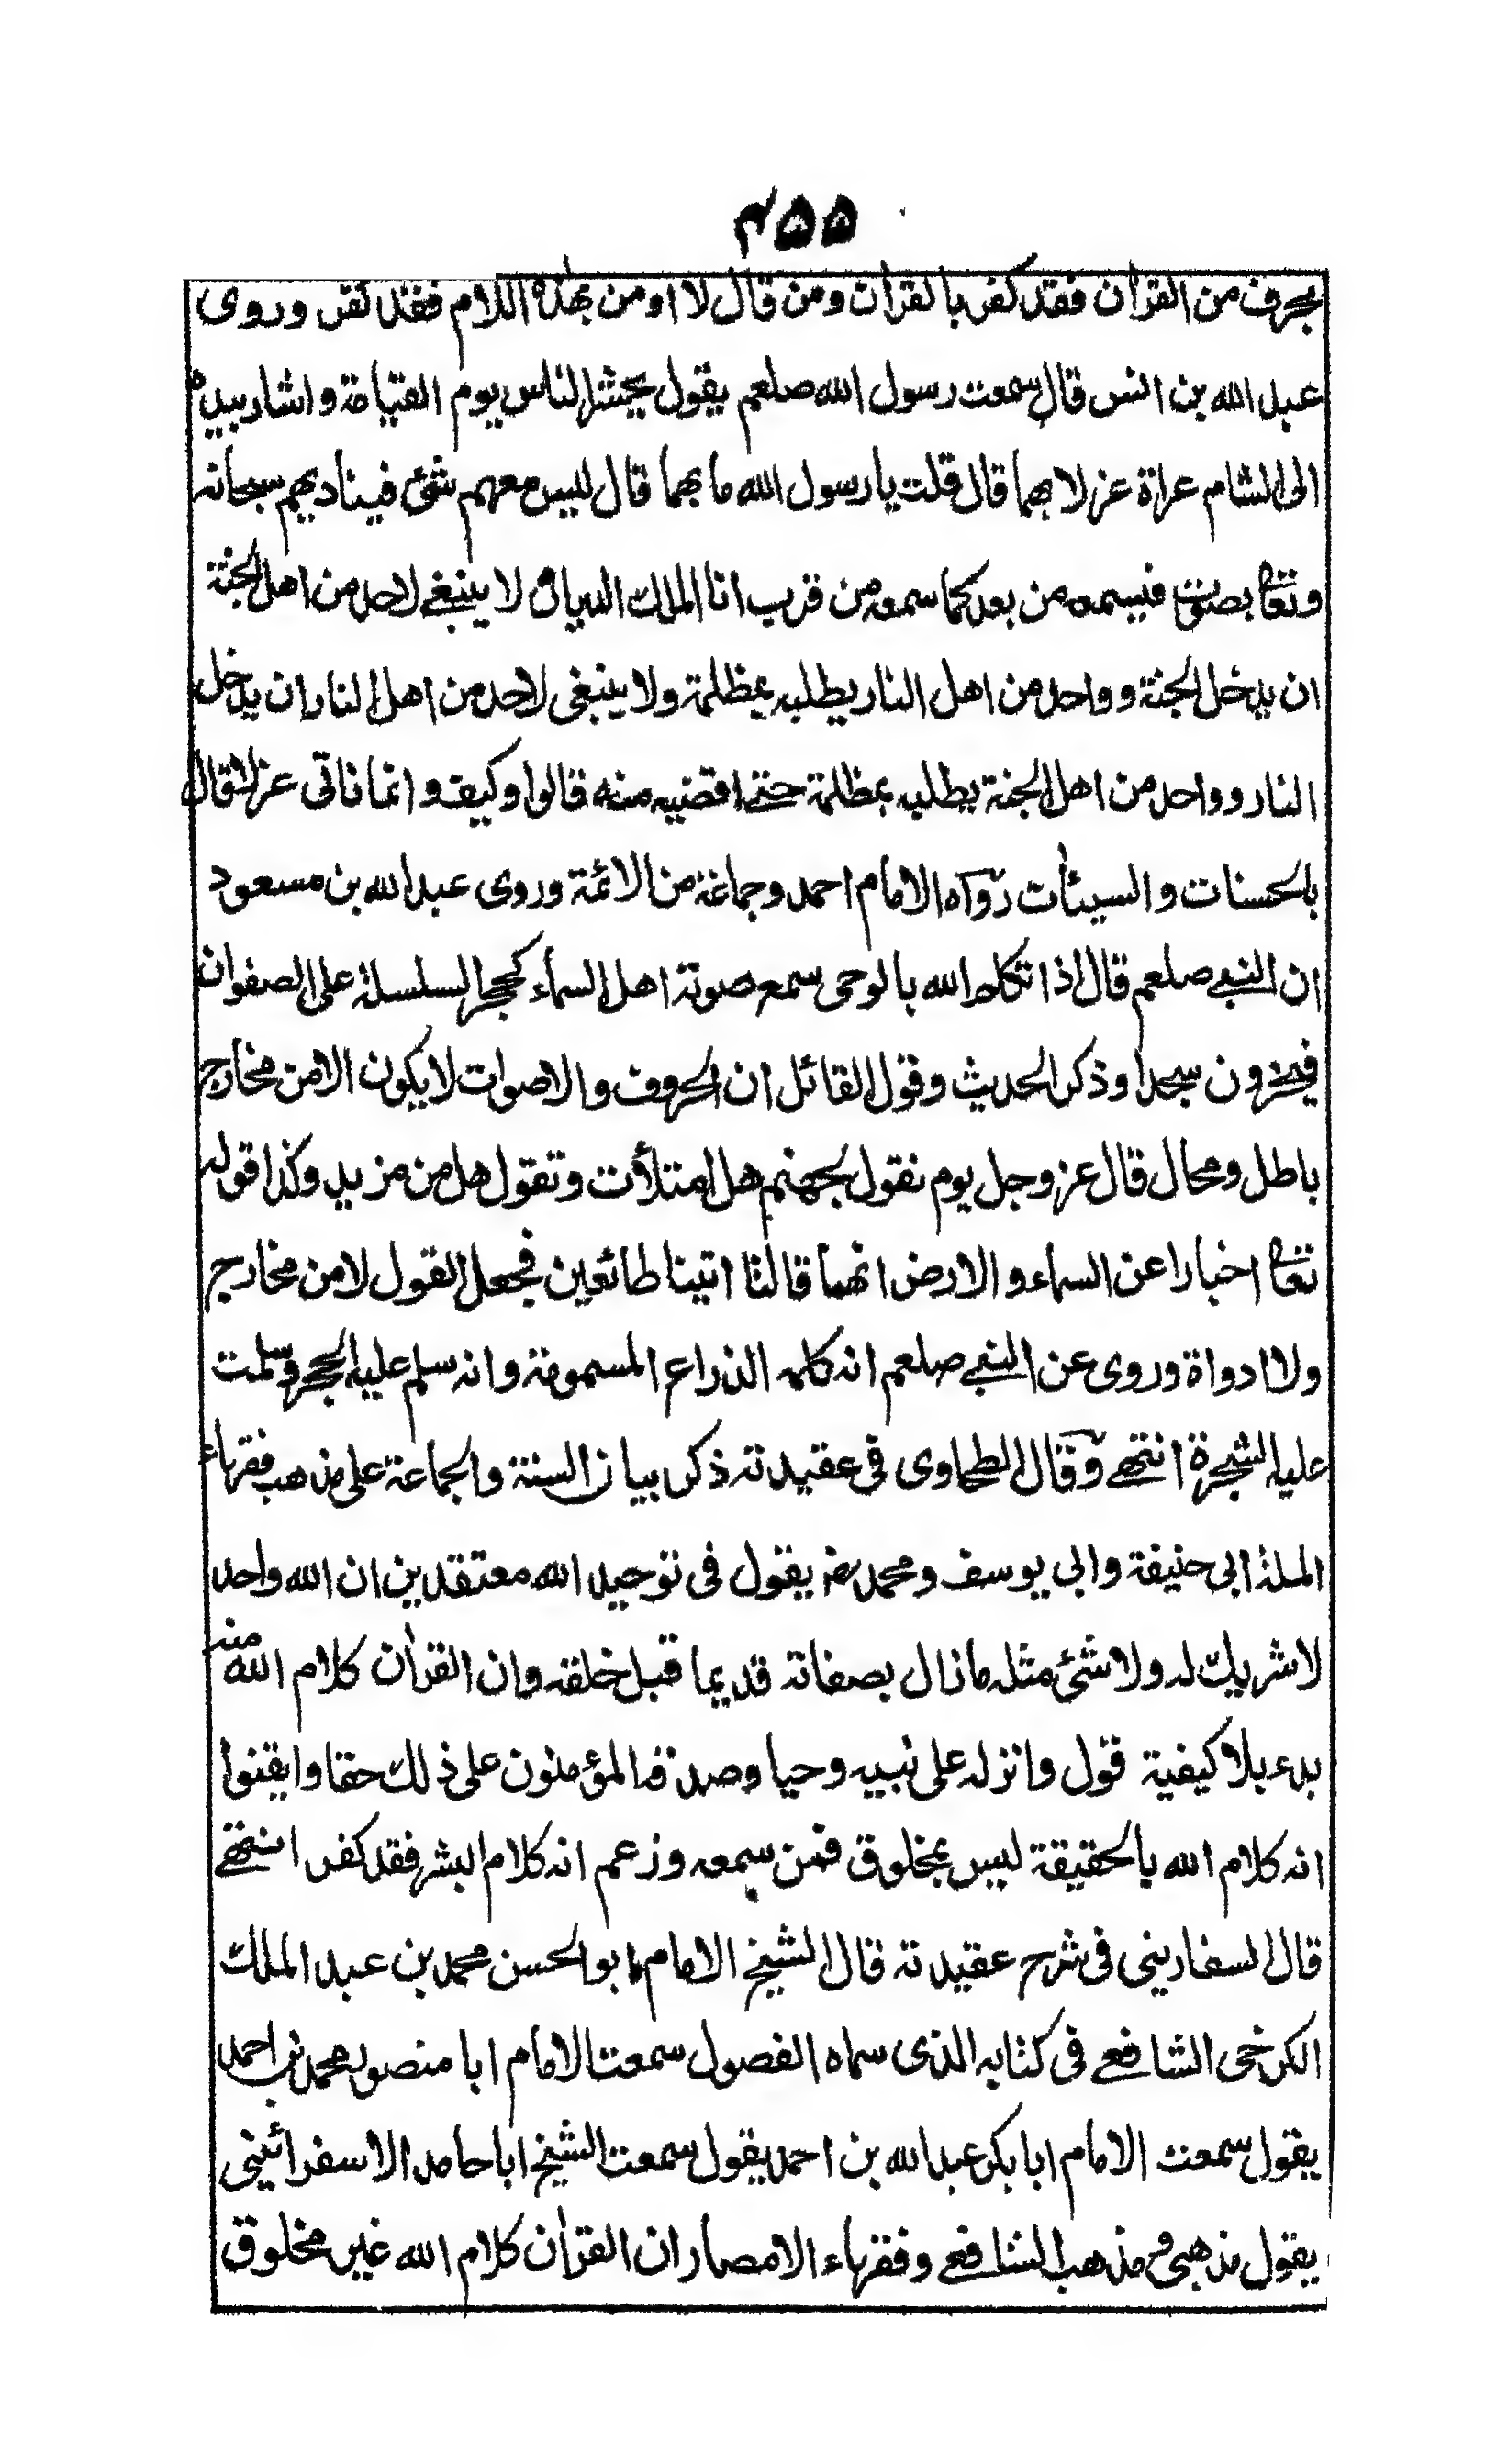 ۴۵۵
بحرف من القرأن فقد كفر بالقرأن ومن قال لا اومن بهذه اللام فقد كفر وروى
عبد الله بن انس قال سمعت رسول الله صلعم يقول يحشر الناس يوم القيامة واشار بيده
الى الشام عراة عزلا بهما قال قلت يا رسول الله ما بهما قال ليس معهم شئ فيناديهم سبحانه
وتعا بصوت فيسمعه من بعد كما سمعه من قرب انا الملك الديان لا ينبغي لاحد من اهل الجنة
ان يدخل الجنة وواحد من اهل النار يطلبه بمظلمة ولا ينبغى لاحد من اهل النار ان يدخل
النار وواحد من اهل الجنة يطلبه بمظلمة حتى اقضيه منه قالوا وكيف وانما ناتى عزلا قال
بالحسنات والسيئات رواه الامام احمد وجماعة من الائمة وروى عبد الله بن مسعود
ان النبي صلعم قال اذا تكلم الله بالوحى سمع صوته اهل السماء كجر السلسلة على الصفوان
فيخرون سجدا وذكر الحديث وقول القائل ان الحروف والاصوات لا يكون الا من مخارج
باطل ومحال قال عز وجل يوم نقول لجهنم هل امتلأت وتقول هل من مزيد وكذا قوله
تعا اخبارا عن السماء والارض انهما قالتا اتينا طائعين فجعل القول لا من مخارج
ولا ادواة وروى عن النبي صلعم انه كلمه الذراع المسمومة وانه سلم عليه الحجر وسلمت
عليه الشجرة انتهى وقال الطحاوى فى عقيدته ذكر بيان السنة والجماعة على مذهب فقهاء
الملة ابى حنيفة وابى يوسف ومحمد رض يقول فى توحيد الله معتقدين ان الله واحد
لا شريك له ولا شئ مثله ما زال بصفاته قديما قبل خلقه وان القرأن كلام الله منه
بدء بلا كيفية قول وانزله على نبيه وحيا وصدقه المؤمنون على ذلك حقا وايقنوا
انه كلام الله بالحقيقة ليس بمخلوق فمن سمعه وزعم انه كلام البشر فقد كفر انتهى
قال السفارينى فى شرح عقيدته قال الشيخ الامام ابو الحسن محمد بن عبد الملك
الكرخى الشافعي فى كتابه الذى سماه الفصول سمعت الامام ابا منصور محمد بن احمد
يقول سمعت الامام ابا بكر عبد الله بن احمد يقول سمعت الشيخ ابا حامد الاسفرائينى
يقول مذهبى ومذهب الشافعي وفقهاء الامصار ان القرأن كلام الله غير مخلوق